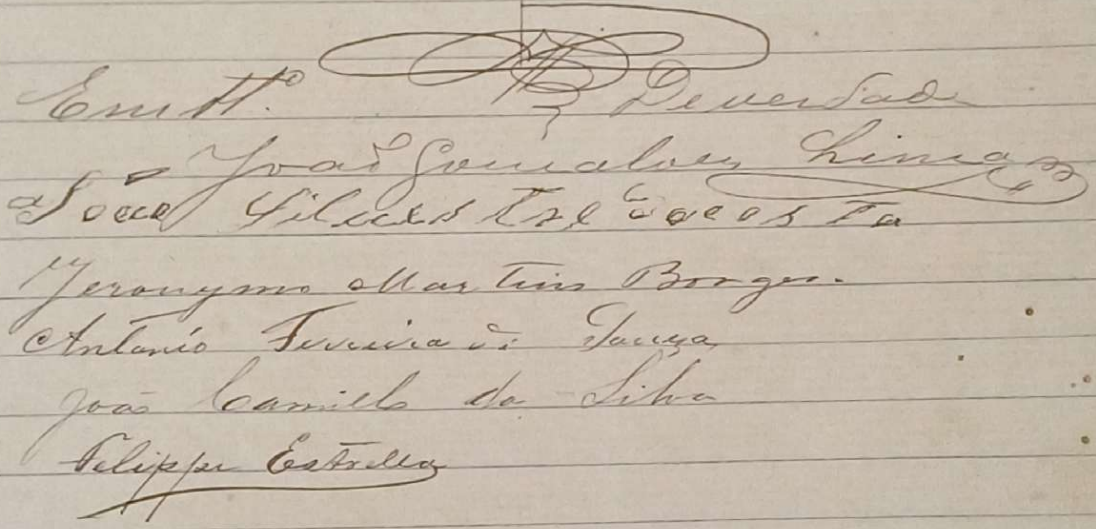 Em tt.º de verdade
João Gonçalves Lima
João
Jeronymo Martins Borges.
Antonio Ferreira de Souza
João Camillo da Silva
Felippe Estrella